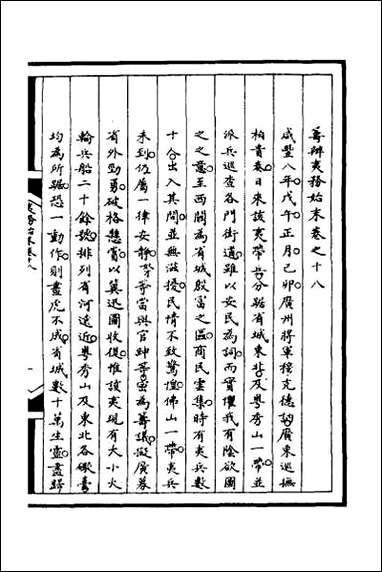 籌辦夷務始末卷之十八
咸豐八年戊午正月己卯廣州將軍穆克德訥廣東巡撫
柏貴奏日來該夷帶兵分踞省城東北及粵秀山一帶並
派兵巡查各門街道雖以安民為詞而實懼我有陰欲圖
之之意至西關為省城殷富之區商民雲集時有夷兵數
十合出入其間並無滋擾民情不致驚惶佛山一帶夷兵
未到仍屬一律安靜等當與官紳等密為籌議擬廣募
省外勁勇破格懸賞以冀迅圖收復惟該夷現有大小火
輪兵船二十餘號排列省河遠近粵秀山及東北各礮臺
均為所踞恐一動作則畫虎不成省城數十萬生靈盡歸
夷務始末卷十八
一